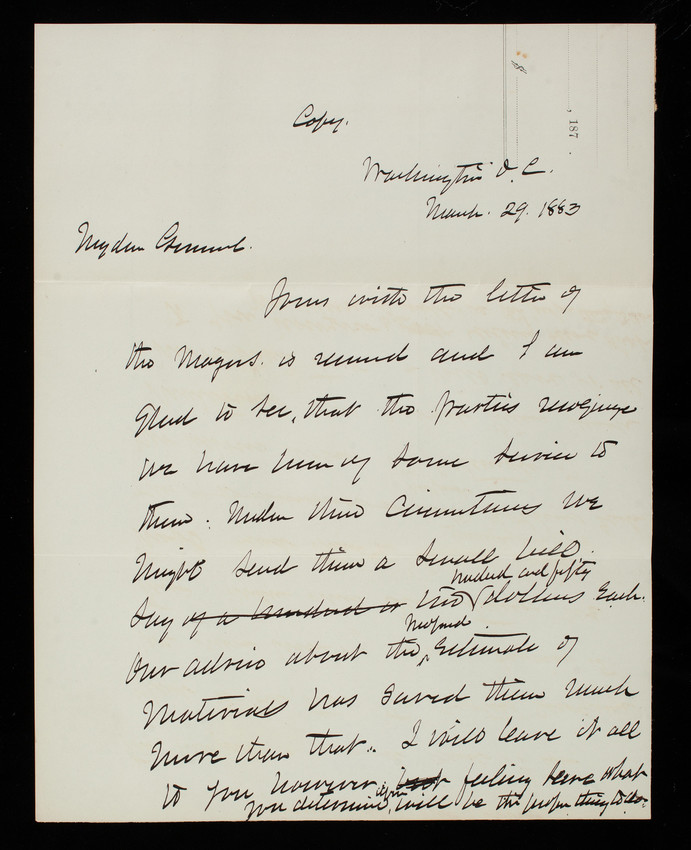 , 187 .
8
Copy.
Washington D.C.
March. 29. 1883
My dear General.
Yours with the letter of
the Mayors. is received and I am
Glad to see, that the parties recognize
we have been of some service to
them. Under these Circumstances we
might send them a small bill.
hundred and fifty
Say of a hundred or two dollars Each.
Our advice about the Estimate of
Materials has saved them much
more than that. I will leave it all
to you however, but feeling sure what
you determine, will be the proper thing to do.